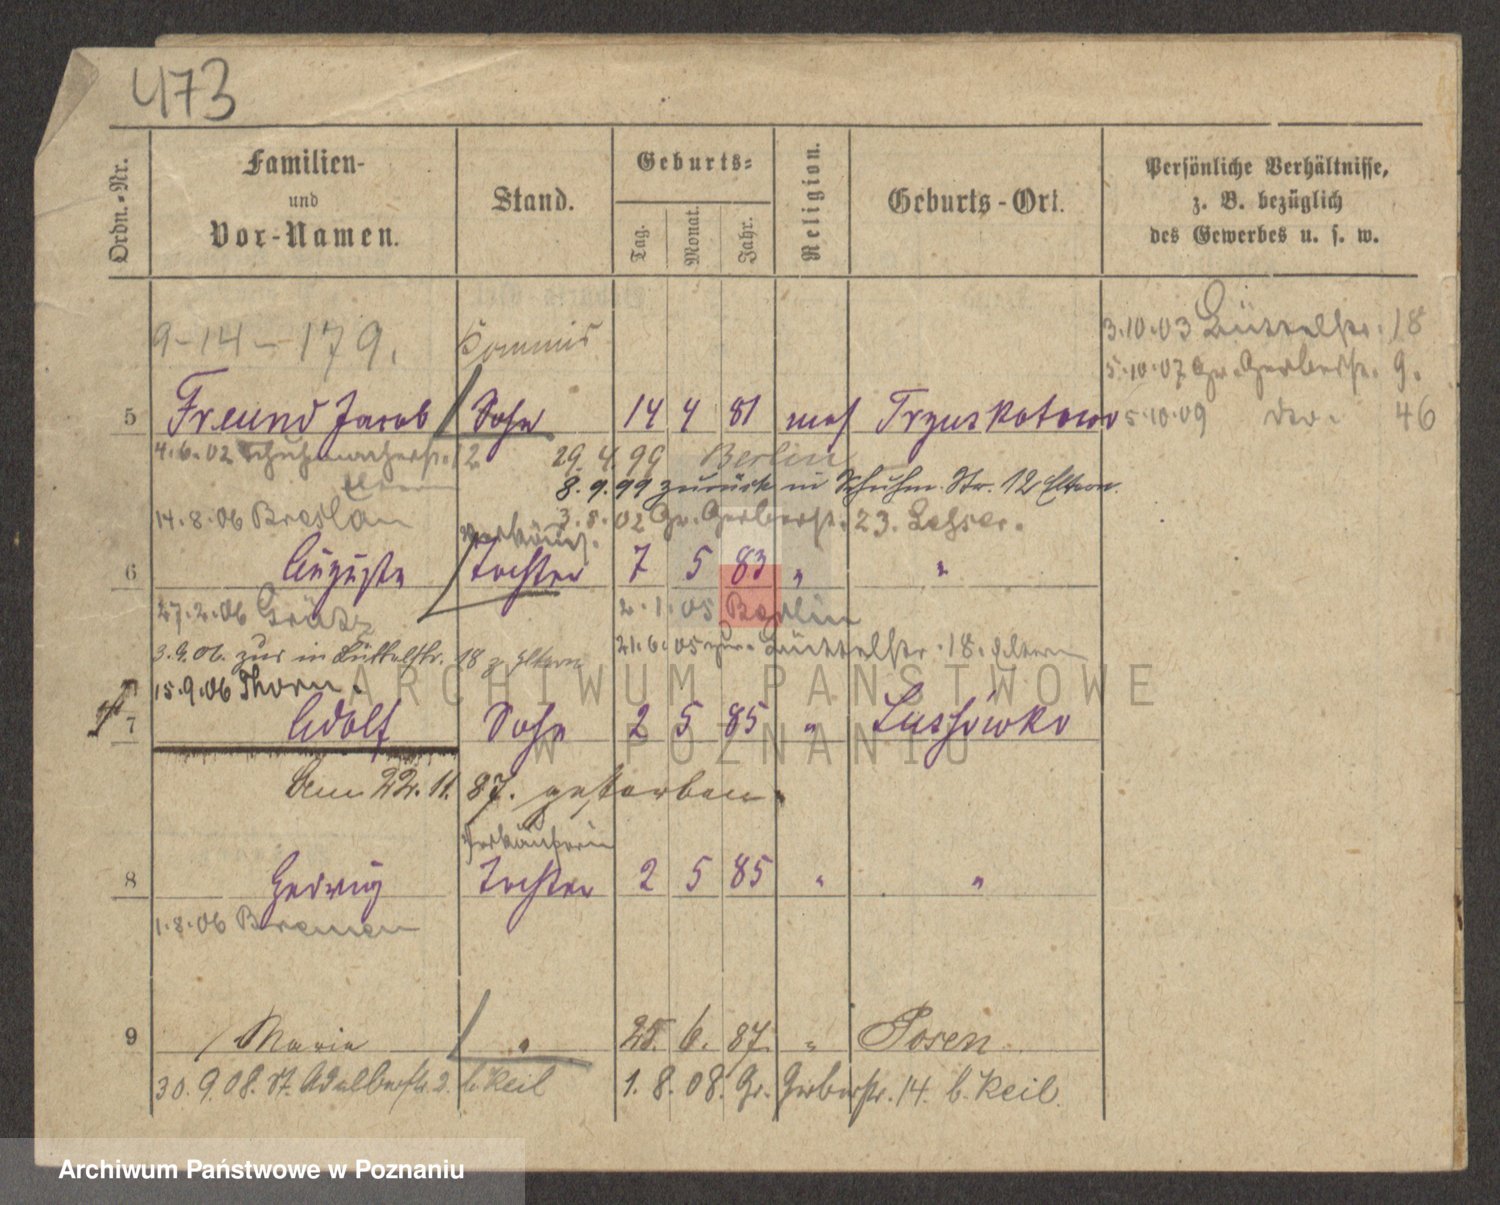 473
Ordn.-Nr.
Familien-
und
Vor-Namen.
Stand.
Geburts-
Tag.
Monat.
Jahr.
Religion.
Geburts-Ort.
Persönliche Verhältnisse,
z. B. bezüglich
des Gewerbes u. s. w.
9-14-179.
Kommis
3.10.03 Büttelstr. 18
5.10.07 Gr. Gerberstr. 9.
5 Freund Jacob Sohn 14 4 81 mos Trzuskotowo
5.10.09 do. 46
4.6.02 Schuhmacherstr. 12 29.4.99 Berlin
Eltern
8.9.99 zurück in Schuhm. Str. 12 Eltern.
14.8.06 Breslau 3.8.02 Gr. Gerberstr. 23. Lesser.
Verkäuf.
6 Auguste Tochter 7 5 83 " "
27.2.06 Grätz 2.1.05 Berlin
3.9.06. zur in Büttelstr. 18 z. Eltern 21.6.05 zur. Büttelstr. 18. Eltern
15.9.06 Thorn.
7 Adolf Sohn 2 5 85 " Lussówko
Am 22.11.87. gestorben.
Verkäuferin
8 Hedwig Tochter 2 5 85 " "
1.8.06 Bremen
9 Marie " 25. 6. 87. " Posen
30.9.08. St. Adalbertstr. 2. b. Keil 1.8.08. Gr. Gerberstr. 14. b. Keil.
ARCHIWUM PAŃSTWOWE
W POZNANIU
Archiwum Państwowe w Poznaniu